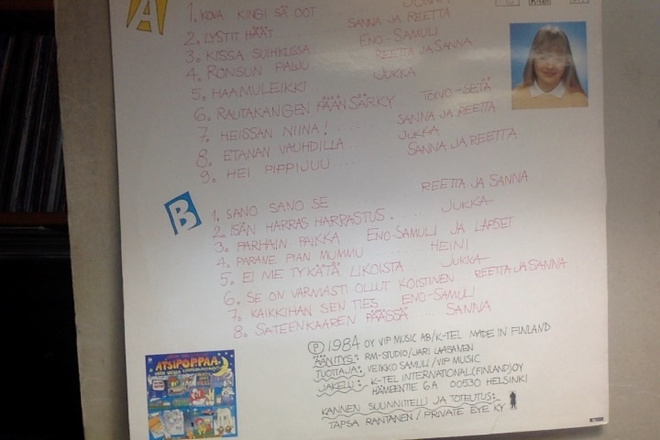 A
1. KOVA KINGI SÄ OOT JUKKA
2. LYSTIT HÄÄT.... SANNA JA REETTA
3. KISSA SUIHKUSSA ENO-SAMULI
4. RONSUN PALJU REETTA JA SANNA
5. HAAMULEIKKI JUKKA
6. RAUTAKANGEN PÄÄNSÄRKY TOIVO-SETÄ
7. HEISSAN NIINA! .... SANNA JA REETTA
8. ETANAN VAUHDILLA JUKKA
9. HEI PIPPIJUU .... SANNA JA REETTA
B
1. SANO SANO SE REETTA JA SANNA
2. ISÄN HARRAS HARRASTUS.... JUKKA
3. PARHAIN PAIKKA ENO-SAMULI JA LAPSET
4. PARANE PIAN MUMMU .... HEINI
5. EI ME TYKÄTÄ LIKOISTA JUKKA
6. SE ON VARMASTI OLLUT KOISTINEN REETTA JA SANNA
7. KAIKKIHAN SEN TIES ENO-SAMULI
8. SATEENKAAREN PÄÄSSÄ .... SANNA
Ⓟ 1984 OY VIP MUSIC AB/K-TEL MADE IN FINLAND
ÄÄNITYS: RM-STUDIO/JARI LAASANEN
TUOTTAJA: VEIKKO SAMULI/VIP MUSIC
JAKELU: K-TEL INTERNATIONAL(FINLAND)OY
HÄMEENTIE 6A 00530 HELSINKI
KANNEN SUUNNITTELU JA TOTEUTUS:
TAPSA RANTANEN/PRIVATE EYE KY
ATSIPOPPAA